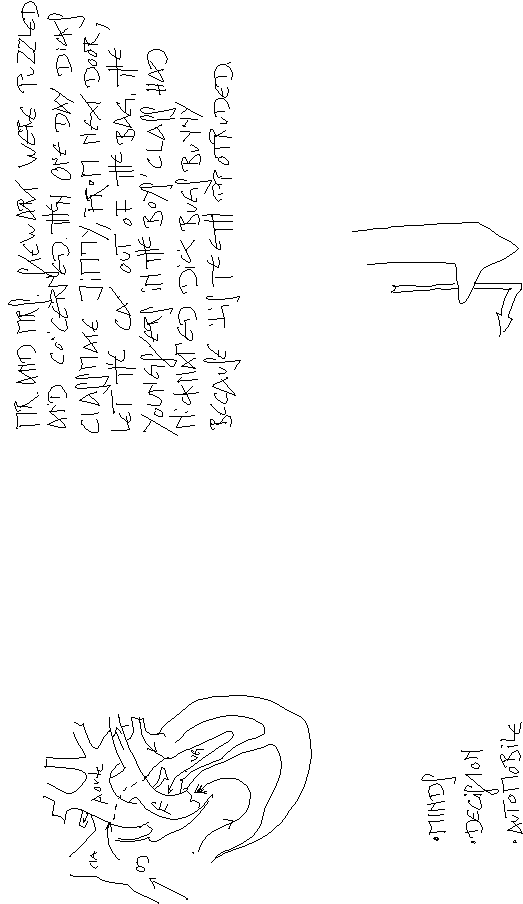 MR AND MRS. STEWART WERE PUZZLED
AND CONCERNED. THEN ONE DAY DICK'S
CLASSMATE JIMMY, FROM NEXT DOOR,
LET THE CAT OUT OF THE BAG. THE
YOUNGSTERS IN THE BOYS' CLASS HAD
NICKNAMED DICK BUGS BUNNY
BECAUSE HIS TEETH PROTRUDED.
Aorte
VG
OD
• MINDS
• DECISION
• AUTOMOBILE